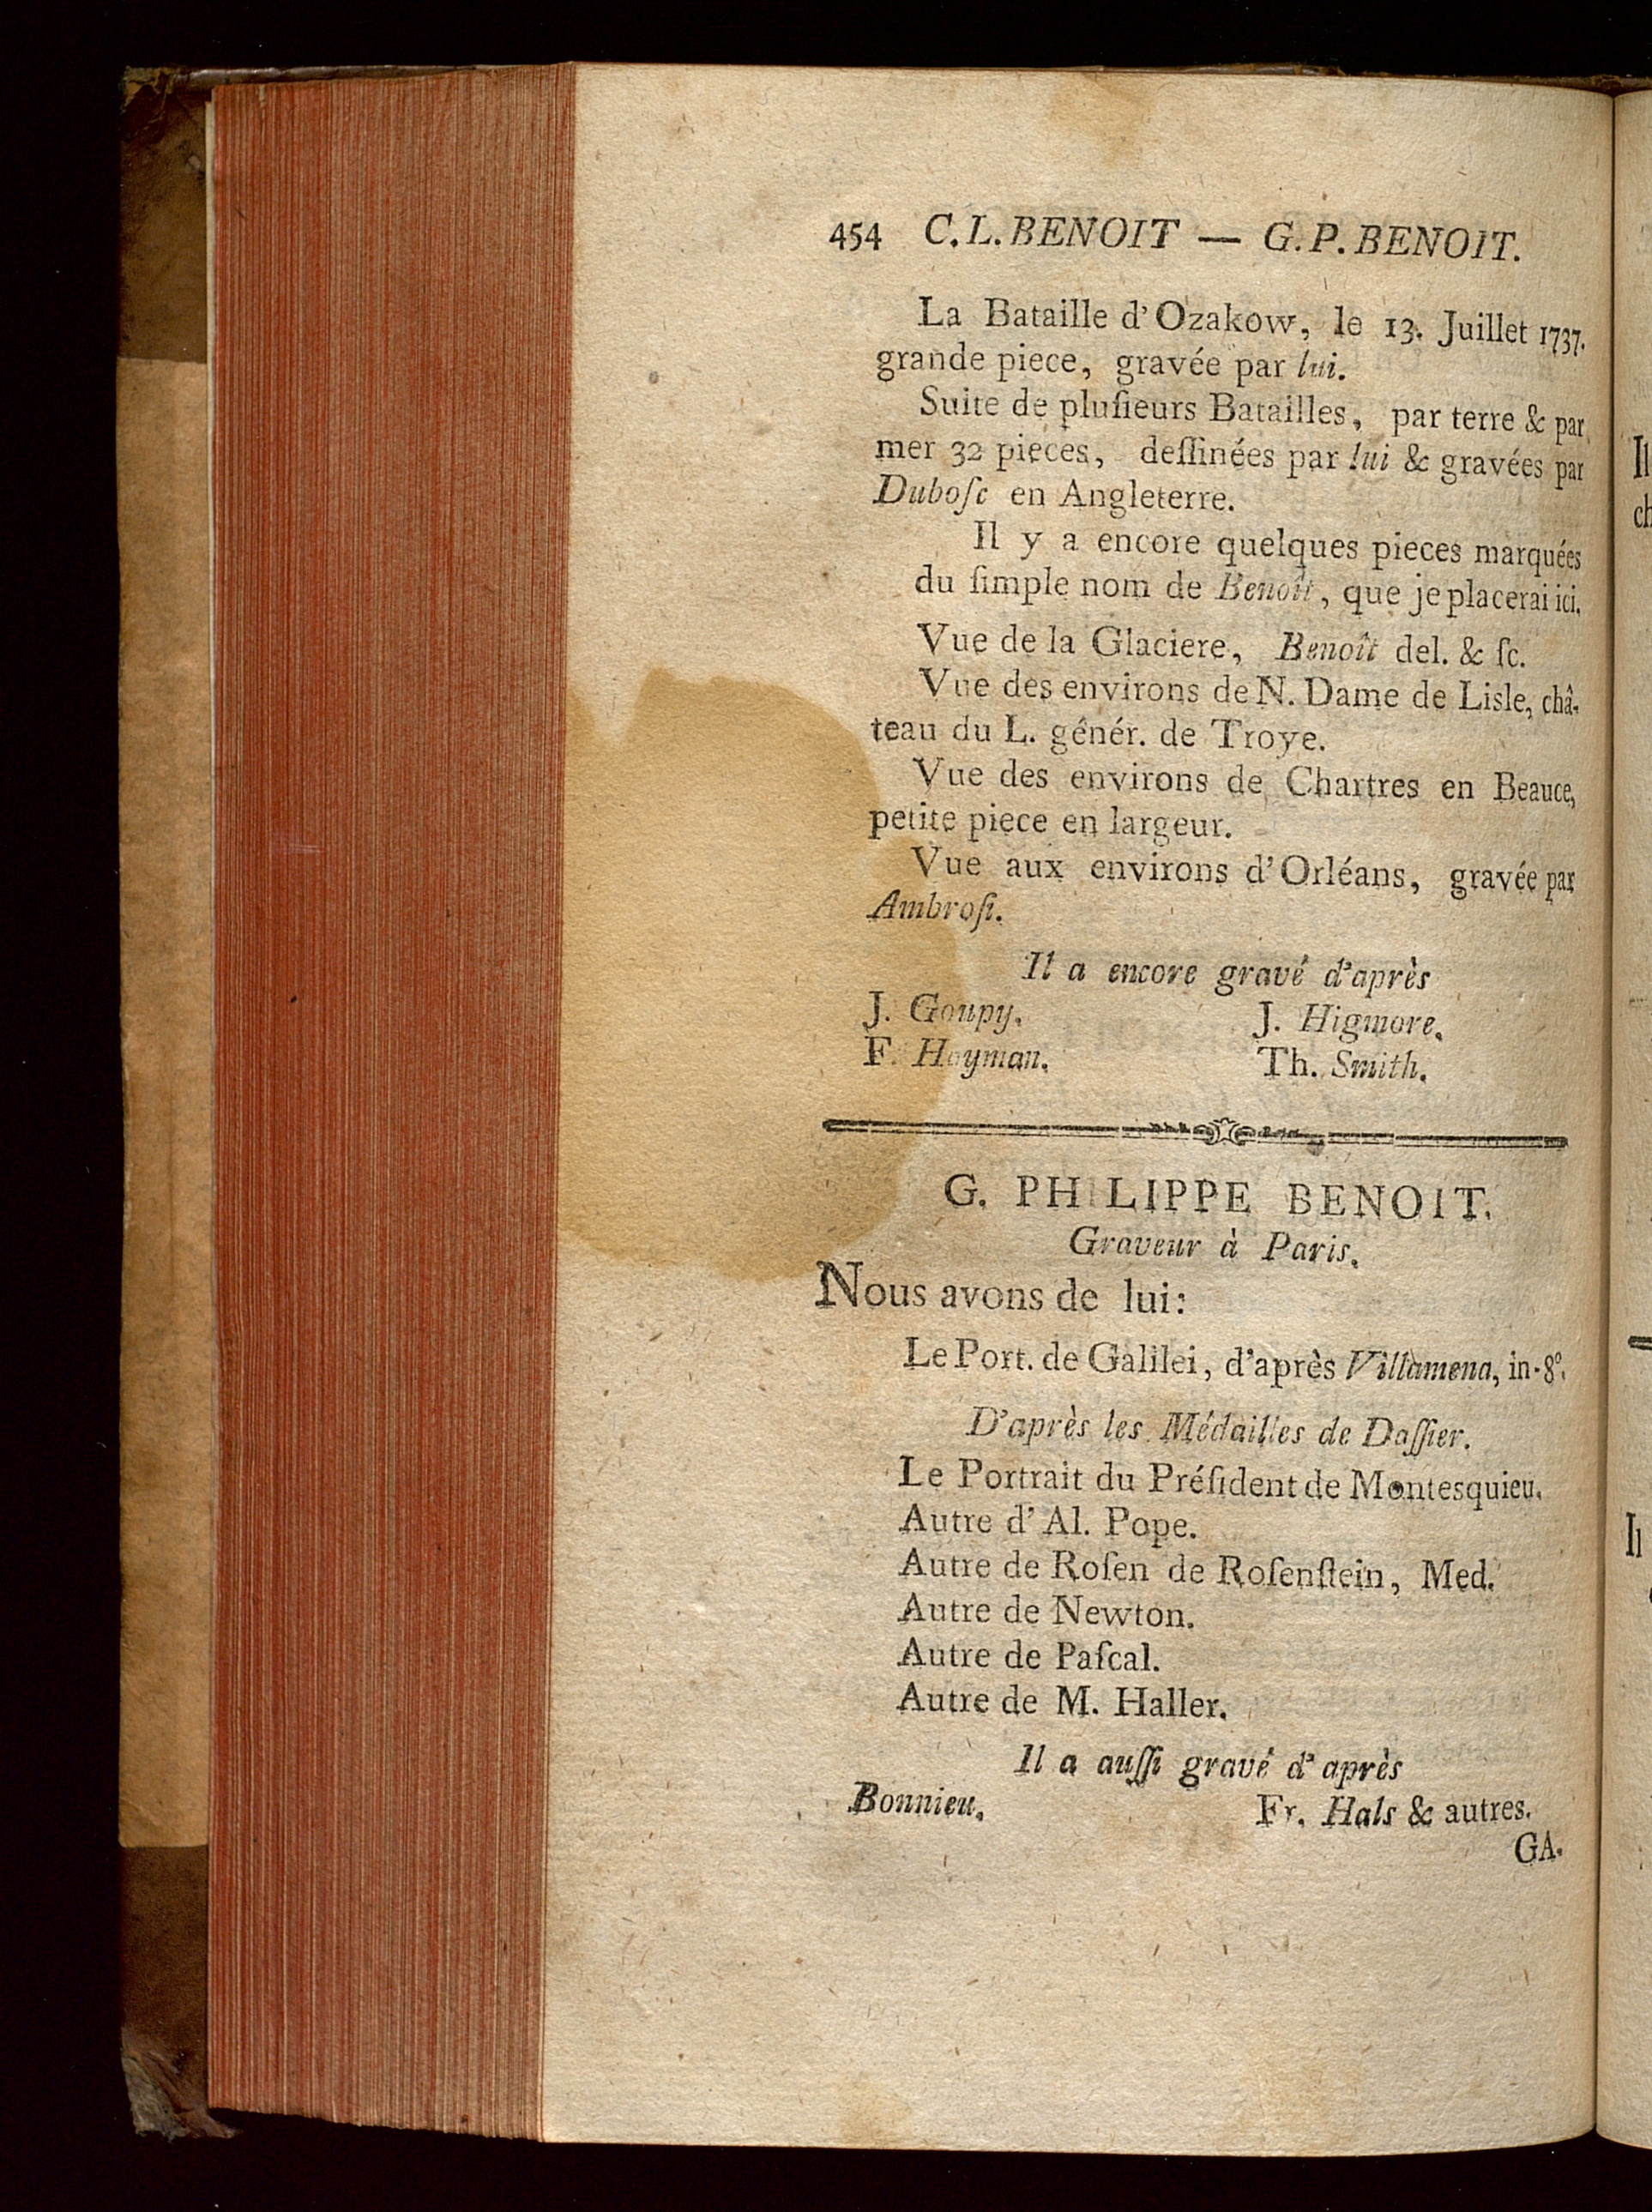 454 C. L. BENOIT — G. P. BENOIT.
La Bataille d'Ozakow, le 13. Juillet 1737.
grande piece, gravée par lui.
Suite de pluſieurs Batailles, par terre & par
mer 32 pieces, deſſinées par lui & gravées par
Duboſc en Angleterre.
Il y a encore quelques pieces marquées
du ſimple nom de Benoît, que je placerai ici.
Vue de la Glaciere, Benoît del. & ſc.
Vue des environs de N. Dame de Lisle, châ-
teau du L. génér. de Troye.
Vue des environs de Chartres en Beauce,
petite piece en largeur.
Vue aux environs d'Orléans, gravée par
Ambroſi.
Il a encore gravé d'après
J. Goupy. J. Higmore.
F. Hayman. Th. Smith.
G. PHILIPPE BENOIT.
Graveur à Paris.
Nous avons de lui:
Le Port. de Galilei, d'après Villamena, in-8°.
D'après les Médailles de Daſſier.
Le Portrait du Préſident de Montesquieu.
Autre d'Al. Pope.
Autre de Roſen de Roſenſtein, Med.
Autre de Newton.
Autre de Paſcal.
Autre de M. Haller.
Il a auſſi gravé d'après
Bonnieu. Fr. Hals & autres.
GA-
Il
ch
Il